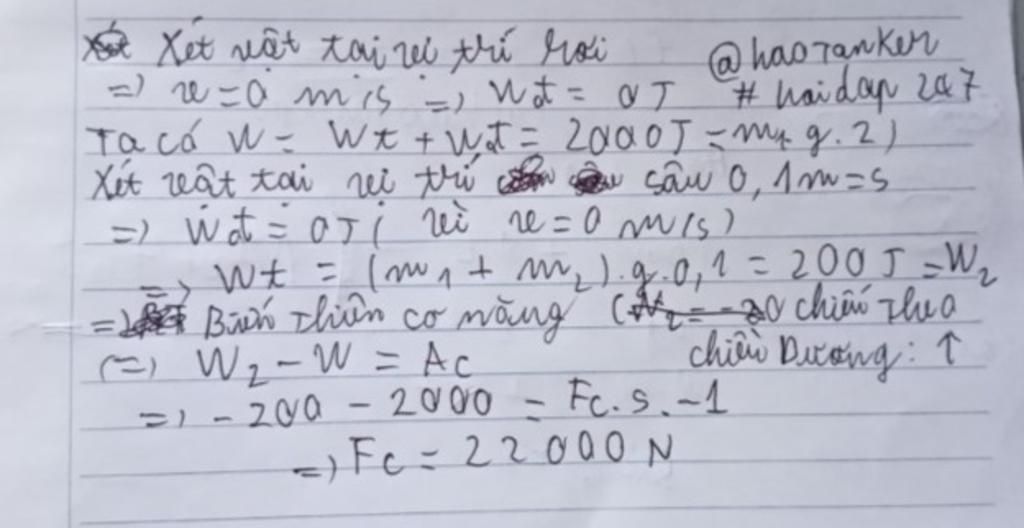 Xét vật tại vị trí rơi @haoTanKer
=> v = 0 m/s => Wđ = 0J #hoidap247
Ta có W = Wt + Wđ = 2000J = m1 g. 2)
Xét vật tại vị trí sâu 0,1m = s
=> Wđ = 0J ( vì v = 0 m/s)
=> Wt = (m1 + m2).g.0,1 = 200J = W2
=> Biến thiên cơ năng chiếu theo
(=) W2 - W = Ac chiều Dương: ↑
=> -200 - 2000 = Fc.s.-1
=> Fc = 22000 N